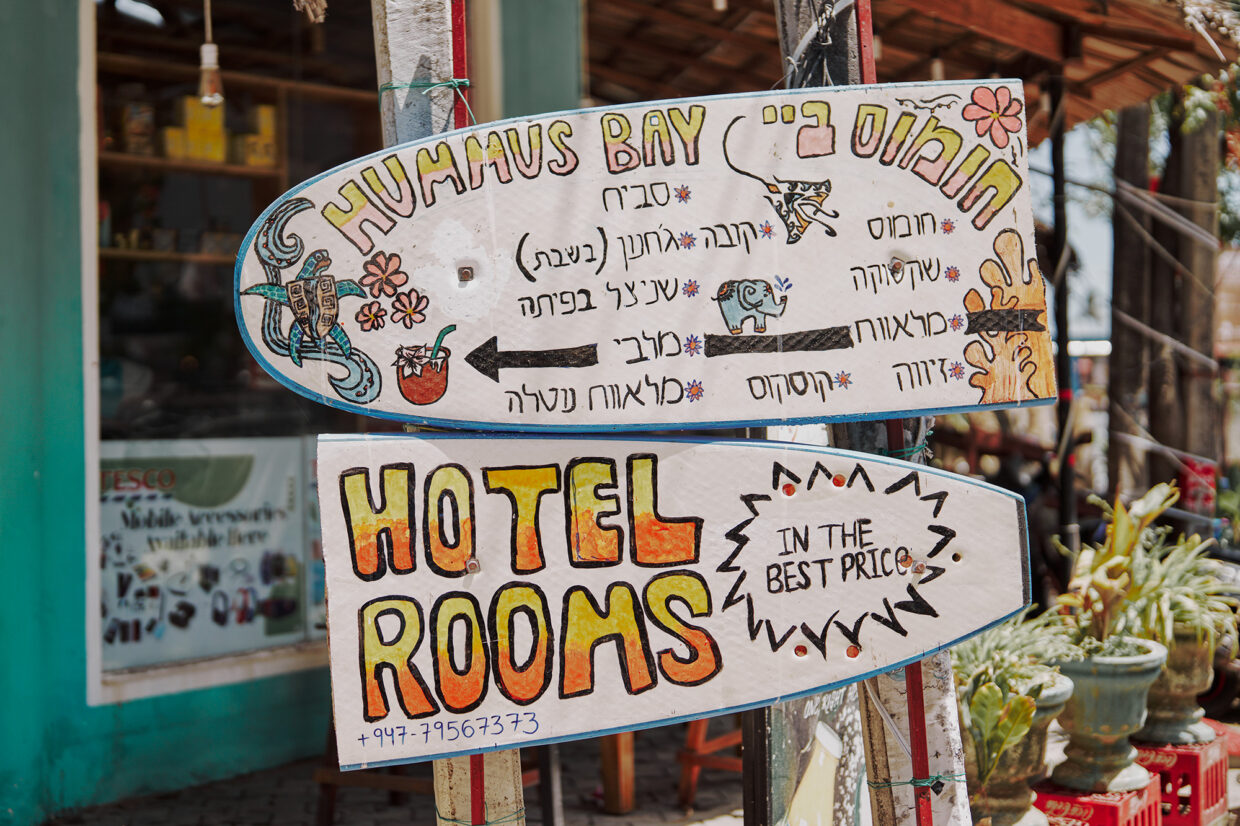 HUMMUS BAY חומוס ביי
חומוס
שקשוקה
מלאווח
זיווה
קובה
קוסקוס
סביח
ג'חנון (בשבת)
שניצל בפיתה
מלבי
מלאווח נוטלה
HOTEL
ROOMS
IN THE
BEST PRICE
+947-79567373
TESCO
Mobile Accessories
Available Here
Coca-Cola